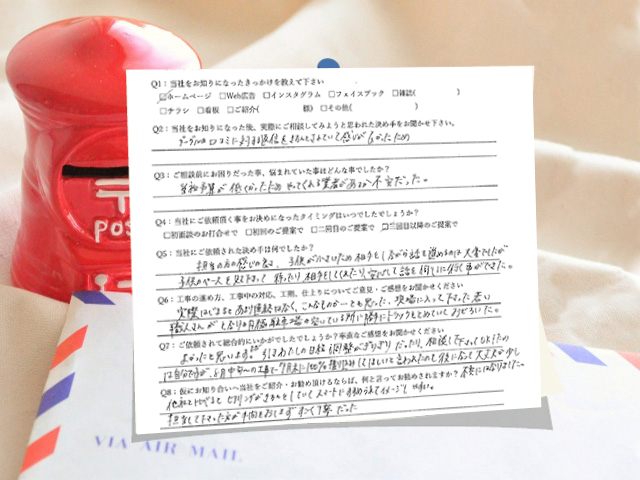 Q1：当社をお知りになったきっかけを教えて下さい
☑ホームページ □Web広告 □インスタグラム □フェイスブック □雑誌( )
□チラシ □看板 □ご紹介( 様) □その他( )
Q2：当社をお知りになった後、実際にご相談してみようと思われた決め手をお聞かせ下さい。
グーグルの口コミに対する返信をきちんとされていて感じがよかったため
Q3：ご相談前にお困りだった事、悩まれていた事はどんな事でしたか？
予算が低かったため やってくれる業者があるか不安だった。
Q4：当社にご依頼頂く事をお決めになったタイミングはいつでしたでしょうか？
□初面談のお打合せで □初回のご提案で □二回目のご提案で ☑三回目以降のご提案で
Q5：当社にご依頼された決め手は何でしたか？
担当の方の感じの良さ、子供が小さいため相手をしながら話を進めるのは大変でしたが
子供のペースを見て下さって 待ったり相手をしてくれたり、 話を 行く事ができた。
Q6：工事の進め方、工事中の対応、工期、仕上りについてご意見・ご感想をお聞かせください
実際はじまると あまり連絡はなく、こんなものか…とも思った。現場に入って下さった 若い
職人さんが となりの月極駐車場の空いている所に勝手にトラックをとめていておどろいた。
Q7：ご依頼されて総合的にいかがでしたでしょうか？率直なご感想をお聞かせください
よかったと思いますが 引きわたしの日程調整がぎりぎりだったり、
は自分ですが、6月中旬 の工事で7月末に100%振り込みしてほしいと言われたのも 大丈夫か少し
Q8：仮にお知り合いへ当社をご紹介・お勧め頂けるならば、何と言ってお勧めされますか？ 不安にはなりました。
他社と比べると ヒアリングがきちんとしていて スマートに イメージしやすい。
担当して下さった方が 手間をおしまず すごく丁寧だった
POS
VIA AIR MAIL